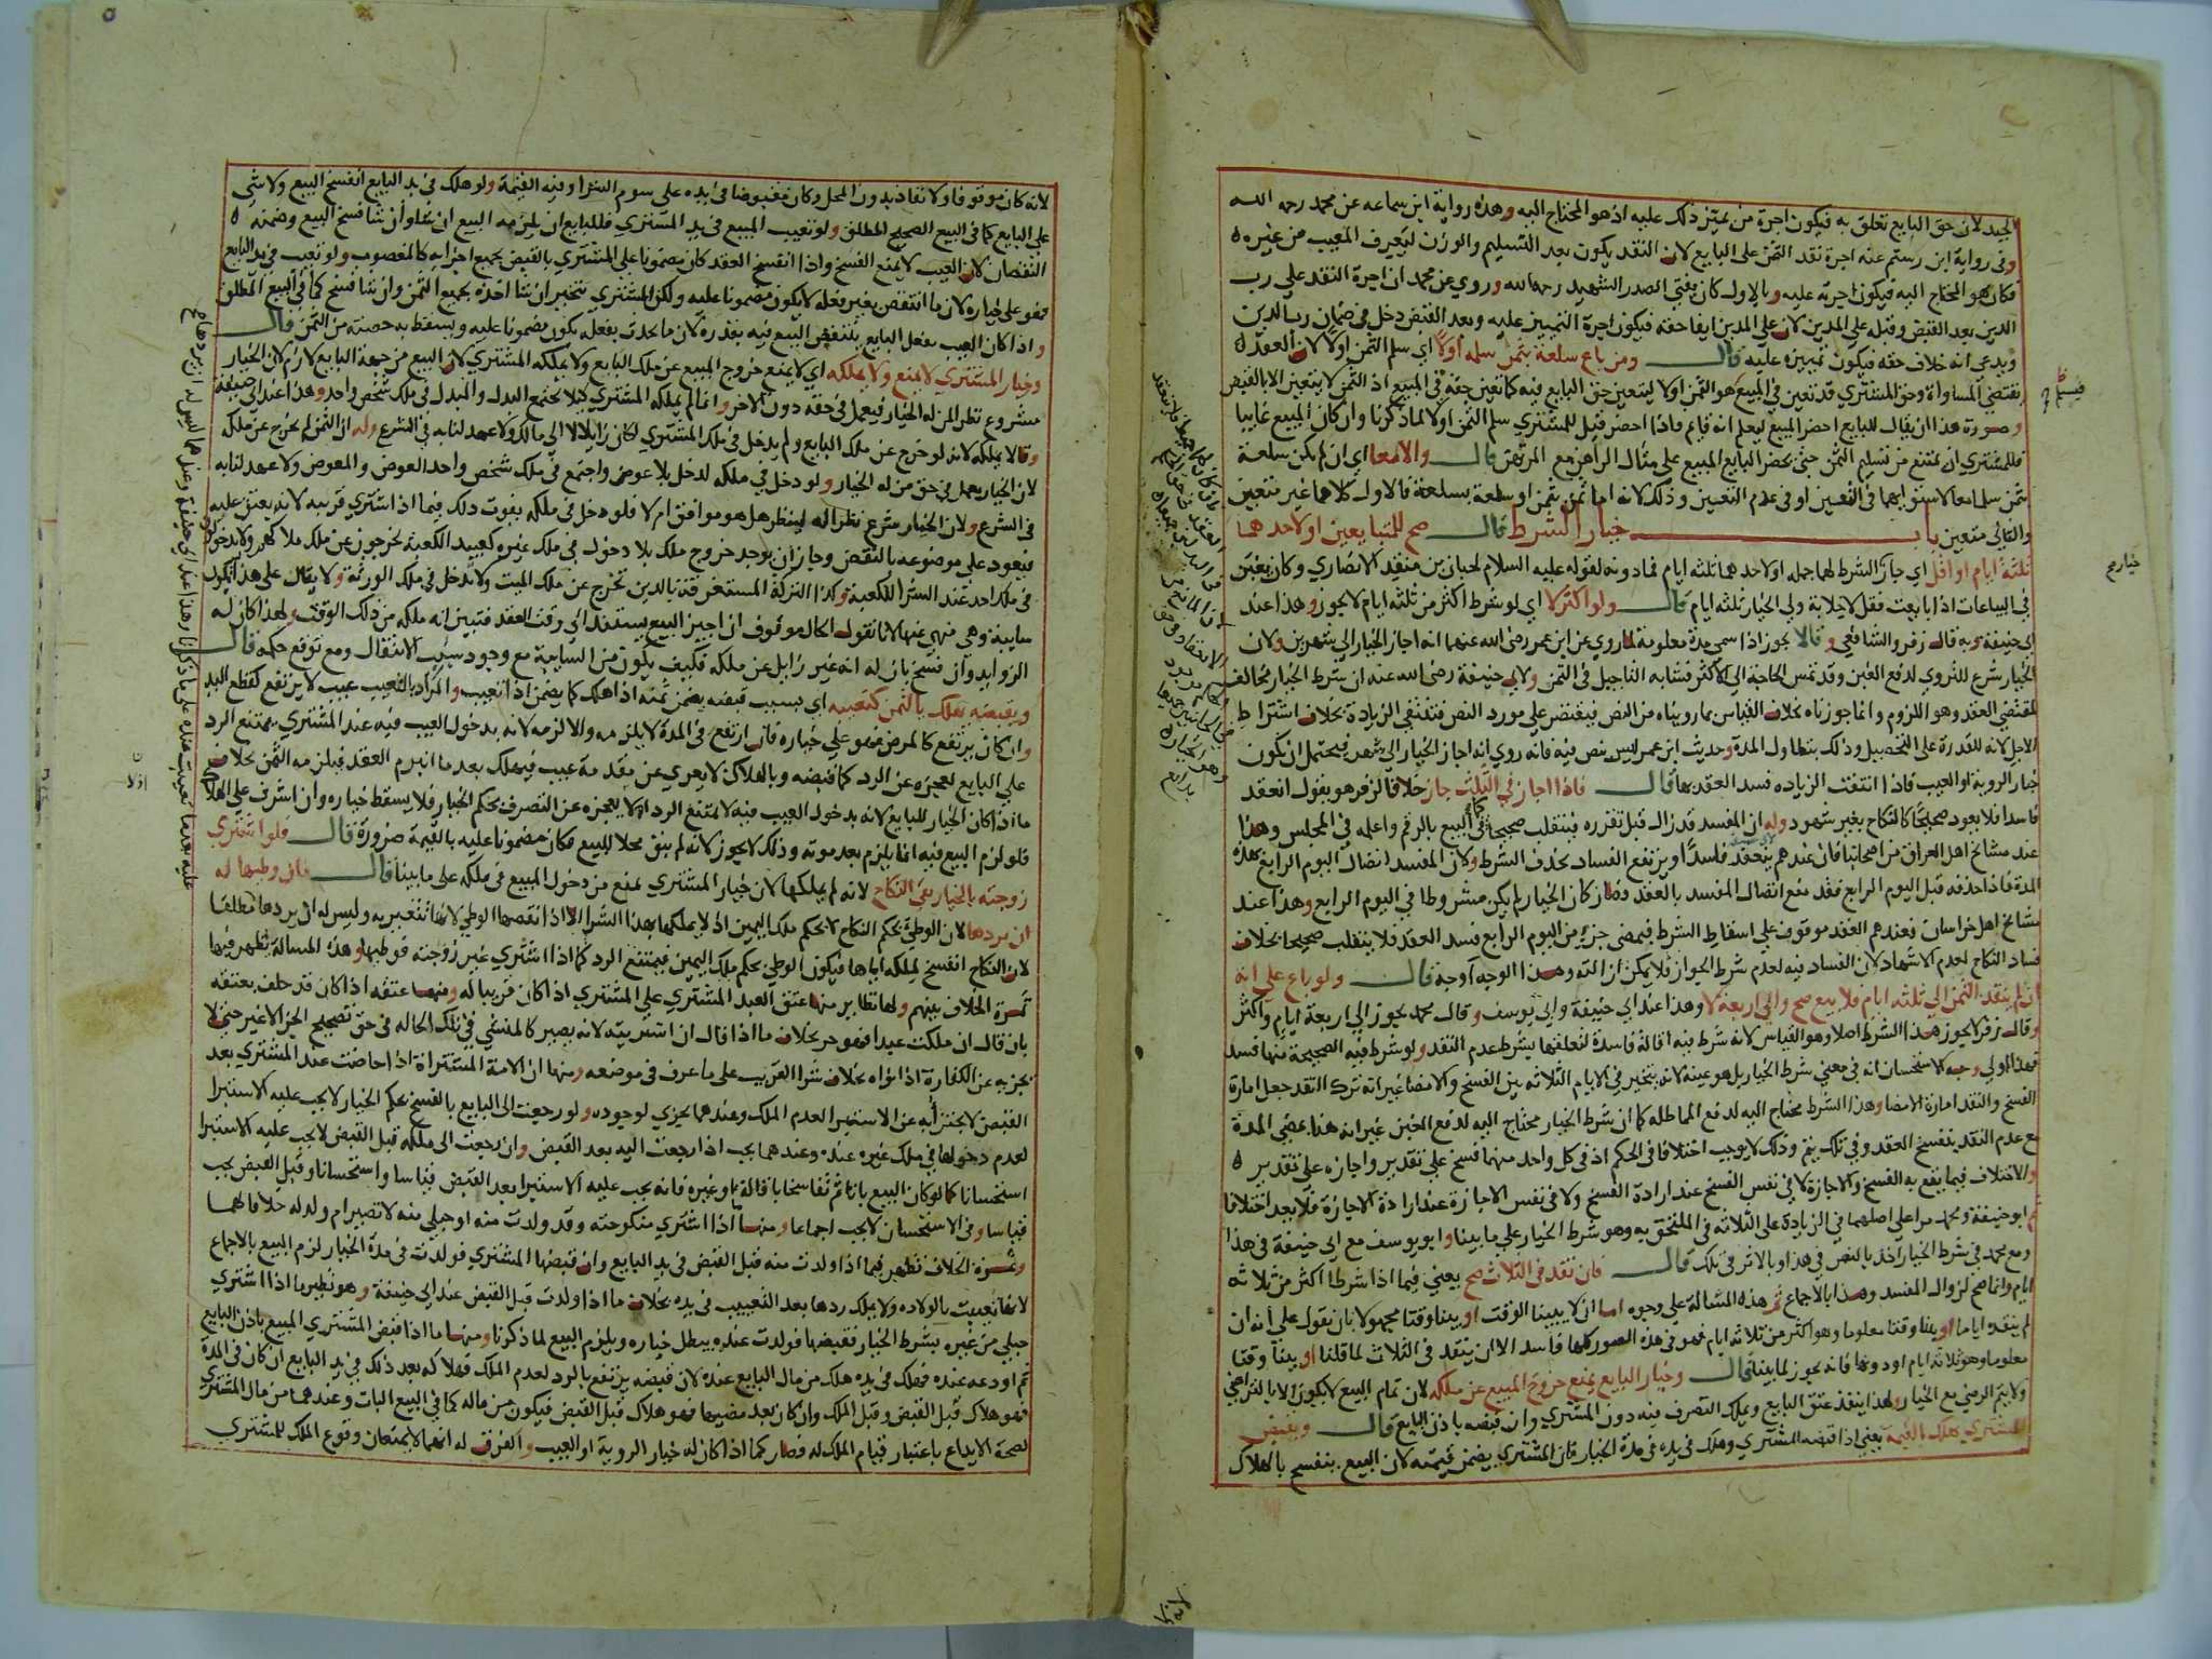 الجيد لان حق البايع تعلق به فيكون اجرة من تميز ذلك عليه اذ هو المحتاج اليه وهذه رواية ابن سماعه عن محمد رحمه الله
وفى رواية ابن رستم عنه اجرة نقد الثمن على البايع لان النقد يكون بعد التسليم والوزن ليعرف المعيب من غيره
فكان هو المحتاج اليه فيكون اجرته عليه وبالاول كان يفتى الصدر الشهيد رحمه الله وروي عن محمد ان اجرة النقد على رب
الدين بعد القبض وقبله على المدين لان على المدين ايفا حقه فيكون اجرة التمييز عليه وبعد القبض دخل فى ضمان رب الدين
ويدعى انه خلاف حقه فيكون تمييزه عليه قال ومن باع سلعة بثمن سلمه اولا اي سلم الثمن اولا لان العقد
يقتضي المساواة وحق المشتري قد تعين في المبيع هو الثمن اولا ليتعين حق البايع فيه كما تعين حقه في المبيع اذ الثمن لا يتعين الا بالقبض
وصورة هذا ان يقال للبايع احضر المبيع ليعلم انه قايم فاذا احضر قيل للمشتري سلم الثمن اولا لما ذكرنا وان كان المبيع غايبا
فللمشتري ان يمتنع من تسليم الثمن حتى يحضر البايع المبيع على مثال الراهن مع المرتهن قال والا معا اي ان لم يكن سلعة
بثمن سلما معا لاستوايهما فى التعين او فى عدم التعيين وذلك لانه اما ثمن بثمن او سلعة بسلعة فالاول كلاهما غير متعين
والثاني متعين باب خيار الشرط قال صح للمتبايعين او لاحدهما
ثلثة ايام او اقل اي جاز الشرط لهما جمله او لاحدهما ثلثه ايام فما دونه لقوله عليه السلام لحبان بن منقد الانصاري وكان يغبن
في البياعات اذا بايعت فقل لا خلابة ولي الخيار ثلثه ايام قال ولو اكثر لا اي لو شرط اكثر من ثلثه ايام لا يجوز وهذا عند
ابي حنيفة وبه قال زفر والشافعي وقالا يجوز اذا سمى مدة معلومة لما روي عن ابن عمر رضى الله عنهما انه اجاز الخيار الى شهرين ولان
الخيار شرع للتروي لدفع الغبن وقد تمس الحاجة الى الاكثر فشابه التاجيل فى الثمن ولابى حنيفة رضى الله عنه ان شرط الخيار مخالف
لمقتضى العقد وهو اللزوم وانما جوزناه بخلاف القياس بما رويناه من النص فيقتصر على مورد النص فتنتفى الزيادة بخلاف اشتراط
الاجل لانه للقدرة على التحصيل وذلك بتطاول المدة وحديث ابن عمر ليس نص فيه فانه روي انه اجاز الخيار الى شهر فيحتمل ان يكون
خيار الروية او العيب فاذا انتفت الزياده فسد العقد بها قال فاذا اجاز في الثلث جاز خلافا لزفر هو يقول انعقد
فاسدا فلا يعود صحيحا كالنكاح بغير شهود وله ان المفسد قد زال قبل تقرره فينقلب صحيحا كما فى البيع بالرقم واعلمه في المجلس وهذا
عند مشايخ اهل العراق من اصحابنا فان عندهم ينعقد فاسدا ويرتفع الفساد بحذف الشرط ولان المفسد اتصال اليوم الرابع بهذه
المدة فاذا حذفه قبل اليوم الرابع فقد منع اتصال المفسد بالعقد وصار كان الخيار لم يكن مشروطا في اليوم الرابع وهذا عند
مشايخ اهل خراسان فعندهم العقد موقوف على اسقاط الشرط فبمضى جزء من اليوم الرابع فسد العقد فلا ينقلب صحيحا بخلاف
فساد النكاح لعدم الاشهاد لان الفساد فيه لعدم شرط الجواز فلا يمكن ازالته وهذا الوجه اوجه قال ولو باع على انه
ان لم ينقد الثمن الى ثلثه ايام فلا بيع صح والى اربعة لا وهذا عند ابي حنيفة وابى يوسف وقال محمد يجوز الى اربعة ايام واكثر
وقال زفر لا يجوز هذا الشرط اصلا وهو القياس لانه شرط فيه اقالة فاسدة لتعلقها بشرط عدم النقد ولو شرط فيه الصحيحة منها فسد
فهذا اولى وجه الاستحسان انه فى معنى شرط الخيار بل هو عينه لانه يتخير فى الايام الثلاثه بين الفسخ والامضا غير انه ترك النقد جعل امارة
الفسخ والنقد امارة الامضا وهذا الشرط محتاج اليه لدفع المماطله كما ان شرط الخيار محتاج اليه لدفع الغبن غير انه هنا بمضي المدة
مع عدم النقد ينفسخ العقد وفي تلك يتم وذلك لا يوجب اختلافا فى الحكم اذ فى كل واحد منهما فسخ على تقدير واجازه على تقدير
والاختلاف فيما يقع به الفسخ والاجازة لا في نفس الفسخ عند ارادة الفسخ ولا فى نفس الاجازة عند ارادة الاجازة فلا يعد اختلافا
ثم ابو حنيفة ومحمد مرا على اصلهما فى الزيادة على الثلاثه فى الملحق به وهو شرط الخيار على ما بينا وابو يوسف مع ابى حنيفة فى هذا
ومع محمد فى شرط الخيار اخذ بالنص فى هذا وبالاثر فى تلك قال فان نقد فى الثلاث صح يعني فيما اذا شرطا اكثر من ثلاثه
ايام وانما صح لزوال المفسد وهذا بالاجماع ثم هذه المسالة على وجوه اما ان لا يبينا الوقت او يبينا وقتا مجهولا بان يقول على انه ان
لم ينقده اياما او يبينا وقتا معلوما وهو اكثر من ثلاثه ايام فهو فى هذه الصور كلها فاسد الا ان ينقد فى الثلاث لما قلنا او يبينا وقتا
معلوما وهو ثلاثه ايام او دونها فانه يجوز لما بينا قال وخيار البايع يمنع خروج المبيع عن ملكه لان تمام البيع لا يكون الا بالتراضي
ولا يتم الرضى مع الخيار ولهذا ينفذ عتق البايع ويملك التصرف فيه دون المشتري وان قبضه باذن البايع قال وبقبض
المشتري هلك بالقيمة يعني اذا قبضه المشتري وهلك فى يده فى مدة الخيار فان المشتري يضمن قيمته لان البيع ينفسخ بالهلاك
خيار
لانه كان موقوفا ولا نفاذ بدون المحل وكان مقبوضا فى يده على سوم الشرا وفيه القيمة ولو هلك فى يد البايع انفسخ البيع ولا شي
على البايع كما فى البيع الصحيح المطلق ولو تعيب المبيع فى يد المشتري فللبايع ان يلزمه البيع ان شا وان شا فسخ البيع وضمنه
النقصان لان العيب لا يمنع الفسخ واذا انفسخ العقد كان مضمونا على المشتري بالقبض بجميع اجزايه كالمغصوب ولو تعيب فى يد البايع
فهو على خياره لان ما انتقص بغير فعله لا يكون مضمونا عليه ولكن المشتري يتخير ان شا اخذه بجميع الثمن وان شا فسخ كما فى البيع المطلق
واذا كان العيب بفعل البايع ينتقض البيع فيه بقدره لان ما يحدث بفعله يكون مضمونا عليه ويسقط به حصته من الثمن قال
وخيار المشتري لا يمنع ولا يملكه اي لا يمنع خروج المبيع عن ملك البايع ولا يملكه المشتري لان البيع من جهة البايع لازم لان الخيار
مشروع نظرا لمن له الخيار فيعمل فى حقه دون الاخر وانما لم يملكه المشتري كيلا يجتمع البدل والمبدل فى ملك شخص واحد وهذا عند ابى حنيفة
وقالا يملكه لانه لو خرج عن ملك البايع ولم يدخل فى ملك المشتري لكان زايلا لا الى مالك ولا عهد لنا به فى الشرع وله ان الثمن لم يخرج عن ملكه
لان الخيار يعمل فى حق من له الخيار ولو دخل فى ملكه لدخل بلا عوض واجتمع فى ملك شخص واحد العوض والمعوض ولا عهد لنا به
فى الشرع ولان الخيار شرع نظرا له لينظر هل هو موافق ام لا فلو دخل فى ملكه يفوت ذلك فيما اذا اشترى قريبه لانه يعتق عليه
فيعود على موضوعه بالنقض وجاز ان يوجد خروج ملك بلا دخول فى ملك غيره كعبيد الكعبة يخرجون عن ملك ملاكهم ولا يدخلون
فى ملك احد عند الشرا للكعبة وكذا التركة المستغرقة بالدين تخرج عن ملك الميت ولا تدخل فى ملك الورثة ولا يقال على هذا يكون
سايبة وهي منهي عنها لانا نقول الحال موقوف ان اجيز البيع يستند الى وقت العقد فتبين انه ملكه من ذلك الوقت ولهذا كان له
الزوايد وان فسخ بان له انه غير زايل عن ملكه فكيف يكون من السايبة مع وجود سبب الانتقال ومع توقع حكمه قال
وبقبضه يهلك بالثمن كتعيبه اي بسبب قبضه يضمن ثمنه اذا هلك كما يضمن اذا تعيب والمراد بالتعيب عيب لا يرتفع كقطع اليد
وان كان يرتفع كالمرض فهو على خياره فان ارتفع فى المدة لا يلزمه والا لزمه لانه بدخول العيب فيه عند المشتري يمتنع الرد
على البايع لعجزه عن الرد كما قبضه وبالهلاك لا يعري عن مقدمة عيب فيهلك بعد ما انبرم العقد فيلزمه الثمن بخلاف
ما اذا كان الخيار للبايع لانه بدخول العيب فيه لا يمتنع الرد اذ لا يعجزه عن التصرف بحكم الخيار فلا يسقط خياره وان اشرف على الهلاك
فلو لزم البيع فيه انما يلزم بعد موته وذلك لا يجوز لانه لم يبق محلا للبيع فكان مضمونا عليه بالقيمة ضرورة قال فلو اشترى
زوجته بالخيار بقى النكاح لانه لم يملكها لان خيار المشتري يمنع من دخول المبيع فى ملكه على ما بينا قال فان وطيها له
ان يردها لان الوطي بحكم النكاح لا بحكم ملك اليمين اذ لا يملكها بهذا الشرا الا اذا انقصها الوطي لانها تتعيب به وليس له ان يردها مطلقا
لان النكاح انفسخ لملكه اياها فيكون الوطي بحكم ملك اليمين فيمتنع الرد كما اذا اشتري غير زوجته فوطيها وهذه المسالة تظهر فيها
ثمرة الخلاف بينهم ولها نظاير منها عتق العبد المشتري على المشتري اذا كان قريبا له ومنها عتقه اذا كان قد حلف بعتقه
بان قال ان ملكت عبدا فهو حر بخلاف ما اذا قال ان اشتريته لانه يصير كالمنشي في تلك الحاله فى حق تصحيح الجزا لا غير حتى لا
يجزيه عن الكفارة اذا نواه بخلاف شرا القريب على ما عرف فى موضعه ومنها ان الامة المشتراة اذا حاضت عند المشتري بعد
القبض لا يجتزأ به عن الاستبرا لعدم الملك وعندهما يجزي لوجوده ولو رجعت الى البايع بالفسخ بحكم الخيار لا يجب عليه الاستبرا
لعدم دخولها فى ملك غيره عنده وعندهما يجب اذا رجعت اليه بعد القبض وان رجعت الى ملكه قبل القبض لا يجب عليه الاستبرا
استحسانا كما لو كان البيع باتا ثم تفاسخا باقالة او غيره فانه يجب عليه الاستبرا بعد القبض قياسا واستحسانا وقبل القبض يجب
قياسا وفى الاستحسان لا يجب اجماعا ومنها اذا اشتري منكوحته وقد ولدت منه او حبلي منه لا تصير ام ولد له خلافا لهما
وثمرة الخلاف تظهر فيما اذا ولدت منه قبل القبض فى يد البايع وان قبضها المشتري فولدت فى مدة الخيار لزم البيع بالاجماع
لانها تعيبت بالولاده ولا يملك ردها بعد التعييب فى يده بخلاف ما اذا ولدت قبل القبض عند ابى حنيفة وهو نظير ما اذا اشتري
حبلي من غيره بشرط الخيار فقبضها فولدت عنده يبطل خياره ويلزم البيع لما ذكرنا ومنها ما اذا قبض المشتري المبيع باذن البايع
ثم اودعه عنده فهلك فى يده هلك من مال البايع عنده لان قبضه يرتفع بالرد لعدم الملك فهلاكه بعد ذلك فى يد البايع ان كان فى المدة
فهو هلاك قبل القبض وقبل الملك وان كان بعد مضيها فهو هلاك قبل القبض فيكون من ماله كما فى البيع البات وعندهما من مال المشتري
لصحة الايداع باعتبار قيام الملك له فصار كما اذا كان له خيار الروية او العيب والفرق له انهما لا يمنعان وقوع الملك للمشتري